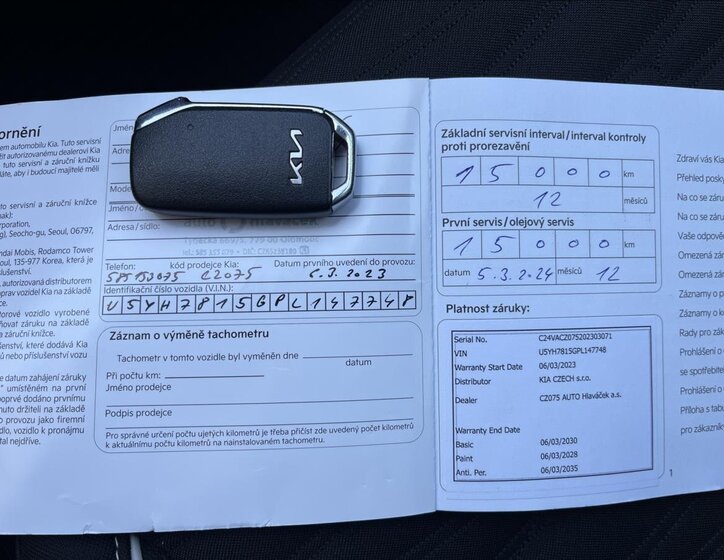 ornění
em automobilu Kia. Tuto servisní
žit autorizovanému dealerovi Kia
tuto servisní a záruční knížku
dáte, aby i budoucí majitelé měli
to servisní a záruční knížce
nak):
orporation,
), Seocho-gu, Seoul, 06797,
ndai Mobis, Rodamco Tower
oul, 135-977 Korea, která je
slušenství.
, autorizovaná distributorem
oprav vozidel Kia na základě
ce.
torové vozidlo vyrobené
ňovat záruku na základě
a záruční knížce.
lušenství, které dodává Kia
ů nebo příslušenství vozu
e datum zahájení záruky
" umístěném na první
poprvé dodáno prvnímu
nuto držiteli na základě
o provozu jako firemní
dlo, vozidlo k pronájmu
tal nejdříve.
Jmén
Adre
KIA
Mode
Jméno/o
Adresa/sídlo:
auto Hlaváček
779 00 Olomouc
Telefon: kód prodejce Kia: Datum prvního uvedení do provozu:
C2075 6.3.2023
Identifikační číslo vozidla (V.I.N.):
U5YH7815GPL147748
Záznam o výměně tachometru
Tachometr v tomto vozidle byl vyměněn dne
datum
Při počtu km:
Jméno prodejce
Podpis prodejce
Pro správné určení počtu ujetých kilometrů je třeba přičíst zde uvedený počet kilometrů
k aktuálnímu počtu kilometrů na nainstalovaném tachometru.
Základní servisní interval/interval kontroly
proti prorezavění
15000 km
12 měsíců
První servis/olejový servis
15000 km
datum 5.3.2024 měsíců 12
Platnost záruky:
Serial No. C24VACZ075202303071
VIN U5YH7815GPL147748
Warranty Start Date 06/03/2023
Distributor KIA CZECH s.r.o.
Dealer CZ075 AUTO Hlaváček a.s.
Warranty End Date
Basic 06/03/2030
Paint 06/03/2028
Anti. Per. 06/03/2035
1
Zdraví vás Kia
Přehled posky
Na co se záru
Na co se záru
Vaše odpově
Omezená zár
Omezená zár
Záznamy o p
Záznamy o k
Rady pro zák
Prohlášení o
se spotřebite
Prohlášení o
Příloha s tab
pro zákazník